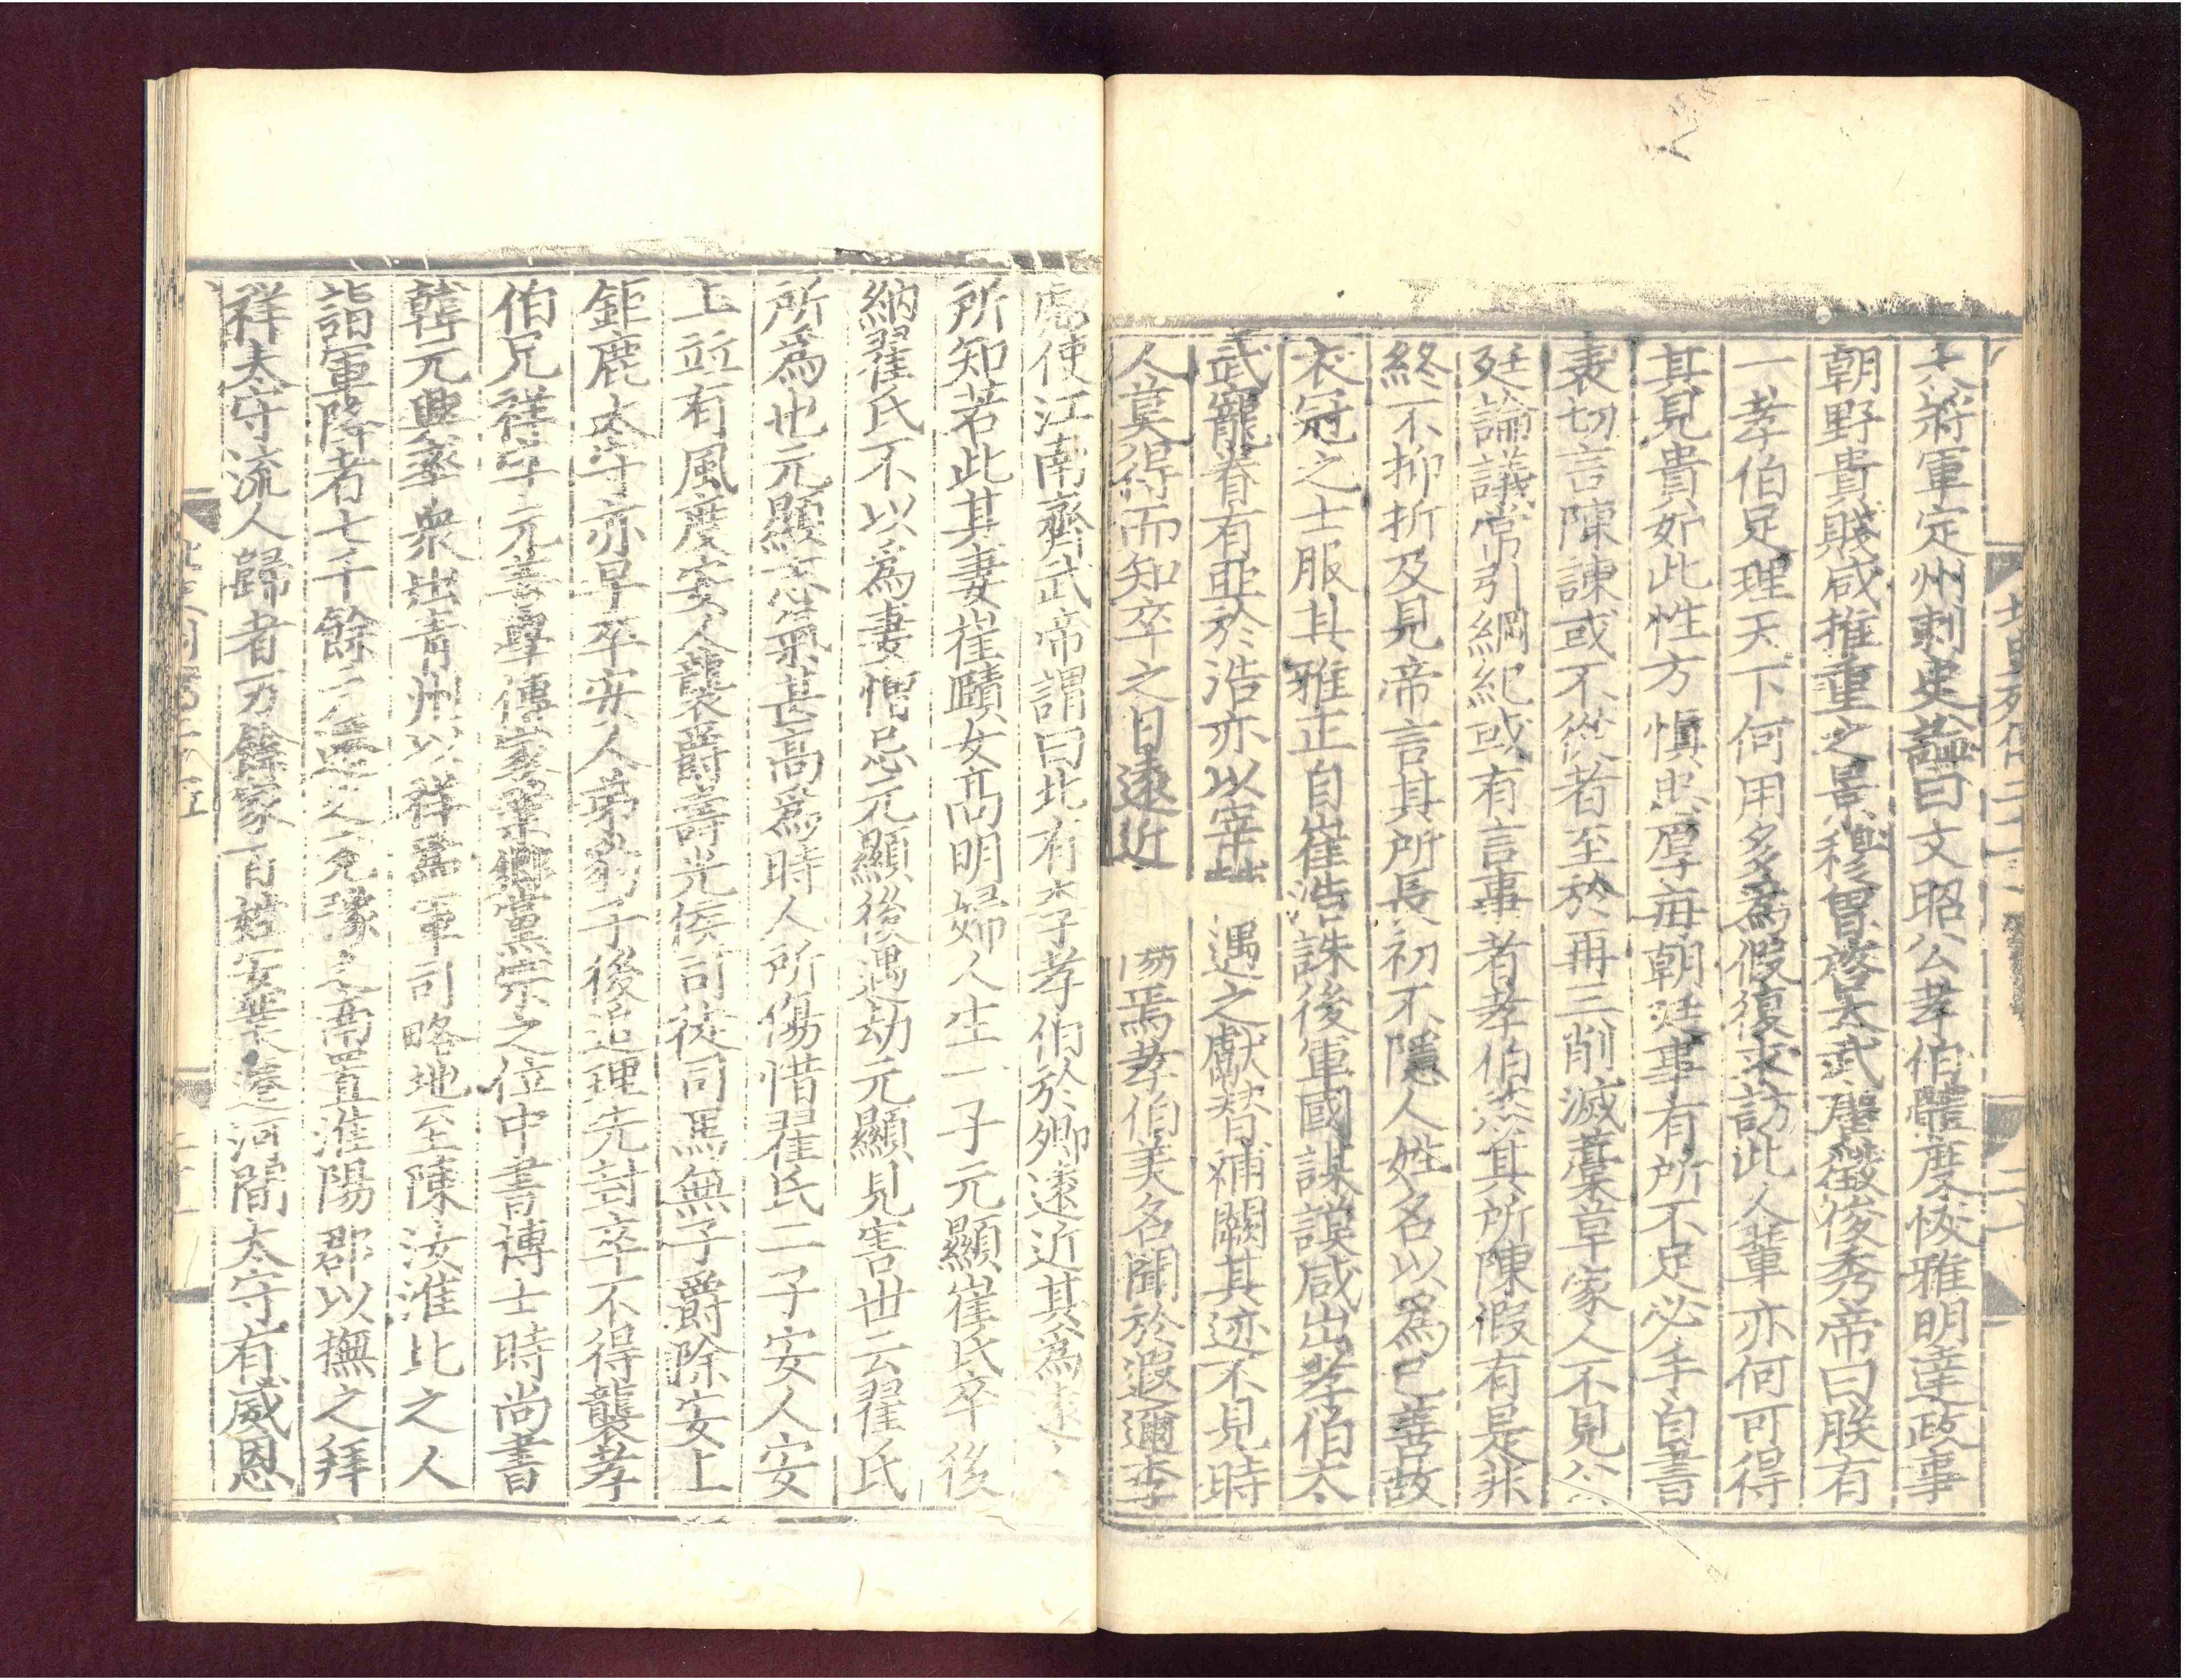 大將軍定州刺史謚曰文昭公孝伯體度恢雅明達政事
朝野貴賤咸推重之景穆曾啓太武廣徵俊秀帝曰朕有
一孝伯足理天下何用多爲假復求訪此人輩亦何可得
其見貴如此性方慎忠厚每朝廷事有所不足必手自書
表切言陳諫或不從者至於再三削滅藁草家人不見公
廷論議常引綱紀或有言事者孝伯恣其所陳假有是非
終不抑折及見帝言其所長初不隱人姓名以爲己善故
衣冠之士服其雅正自崔浩誅後軍國謀謨咸出孝伯太
武寵眷有亞於浩亦以宰 遇之獻替補闕其迹不見時
人莫得而知卒之日遠近 焉孝伯美名聞於遐邇李
使江南齊武帝謂曰北有李孝伯於卿遠近其爲遠
所知若此其妻崔賾女高明婦人生一子元顯崔氏卒後
納翟氏不以爲妻憎忌元顯後遇劫元顯見害世云翟氏
所爲也元顯志氣甚高爲時人所傷惜翟氏二子安人安
上竝有風度安人襲爵壽光侯司徒司馬無子爵除安上
鉅鹿太守亦早卒安人弟豹子後追理先封卒不得襲孝
伯兄祥字元善學傳家業鄉黨宗之位中書博士時尚書
韓元興率衆出青州以祥爲軍司略地至陳汝淮北之人
詣軍降者七千餘戶遷之兖豫之南置淮陽郡以撫之拜
祥太守流人歸者万餘家百姓安業遷河間太守有威恩